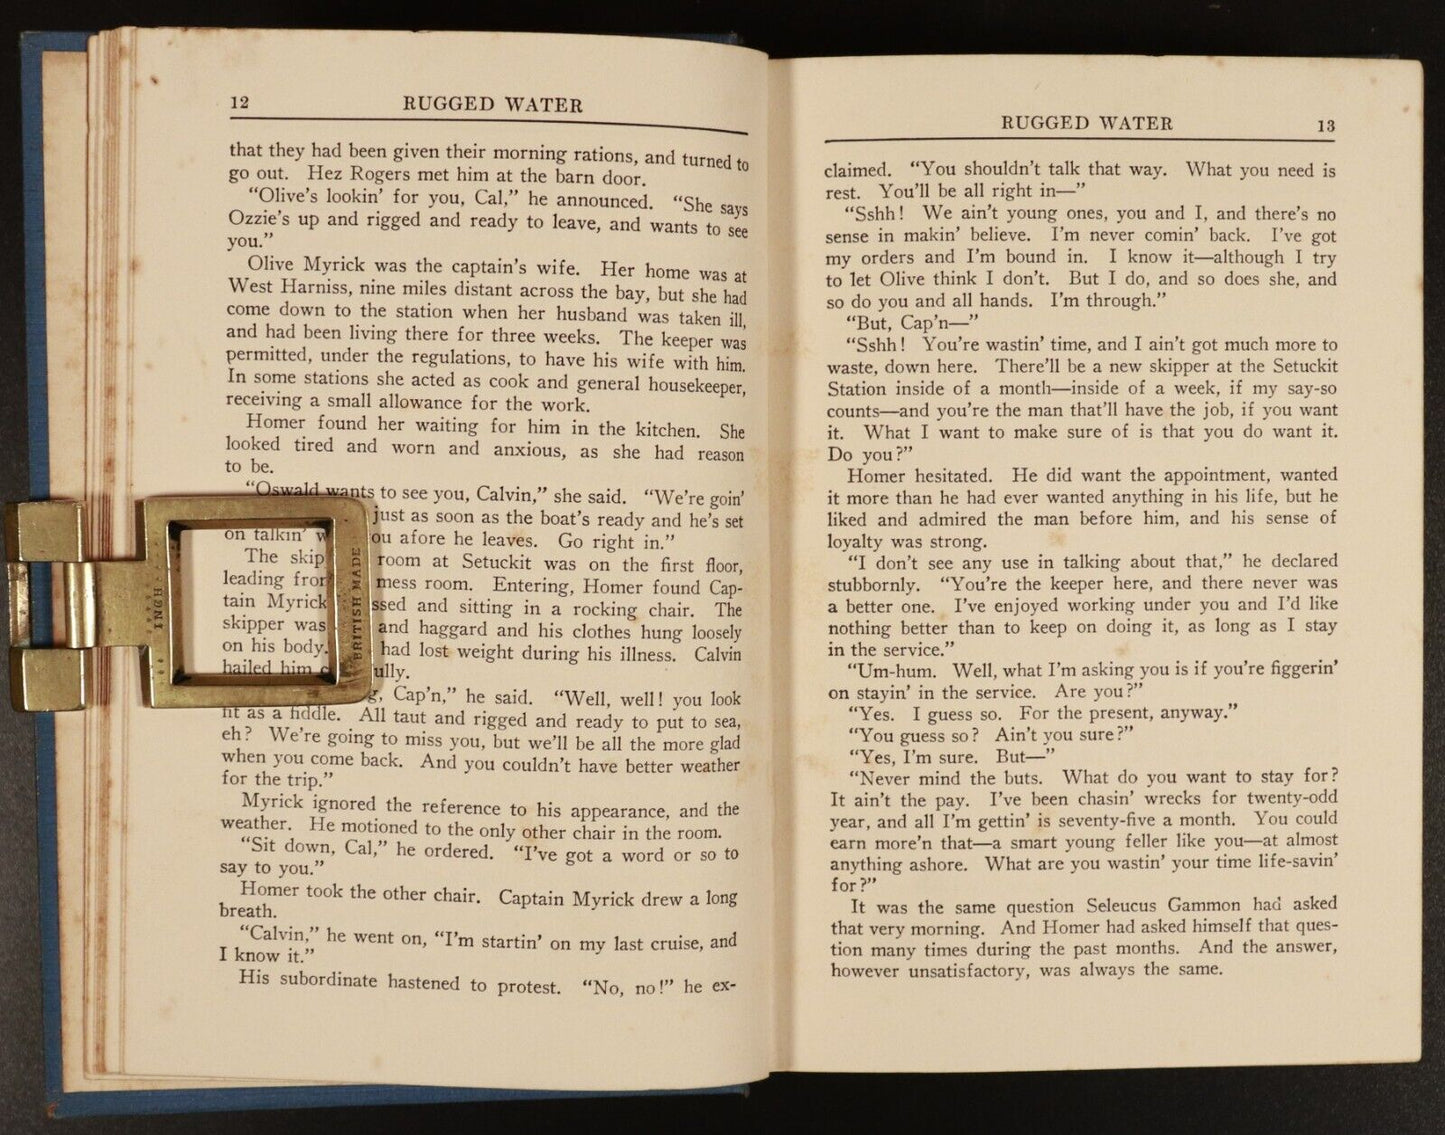 12 RUGGED WATER
that they had been given their morning rations, and turned to
go out. Hez Rogers met him at the barn door.
“Olive’s lookin’ for you, Cal,” he announced. “She says
Ozzie’s up and rigged and ready to leave, and wants to see
you.”
Olive Myrick was the captain’s wife. Her home was at
West Harniss, nine miles distant across the bay, but she had
come down to the station when her husband was taken ill,
and had been living there for three weeks. The keeper was
permitted, under the regulations, to have his wife with him.
In some stations she acted as cook and general housekeeper,
receiving a small allowance for the work.
Homer found her waiting for him in the kitchen. She
looked tired and worn and anxious, as she had reason
to be.
“Oswald wants to see you, Calvin,” she said. “We’re goin’
just as soon as the boat’s ready and he’s set
on talkin’ w ou afore he leaves. Go right in.”
The skip room at Setuckit was on the first floor,
leading fro mess room. Entering, Homer found Cap-
tain Myrick ssed and sitting in a rocking chair. The
skipper was and haggard and his clothes hung loosely
on his body. had lost weight during his illness. Calvin
hailed him c ully.
g, Cap’n,” he said. “Well, well! you look
fit as a fiddle. All taut and rigged and ready to put to sea,
eh? We’re going to miss you, but we’ll be all the more glad
when you come back. And you couldn’t have better weather
for the trip.”
Myrick ignored the reference to his appearance, and the
weather. He motioned to the only other chair in the room.
“Sit down, Cal,” he ordered. “I’ve got a word or so to
say to you.”
Homer took the other chair. Captain Myrick drew a long
breath.
“Calvin,” he went on, “I’m startin’ on my last cruise, and
I know it.”
His subordinate hastened to protest. “No, no!” he ex-
BRITISH MADE
RUGGED WATER 13
claimed. “You shouldn’t talk that way. What you need is
rest. You’ll be all right in—”
“Sshh! We ain’t young ones, you and I, and there’s no
sense in makin’ believe. I’m never comin’ back. I’ve got
my orders and I’m bound in. I know it—although I try
to let Olive think I don’t. But I do, and so does she, and
so do you and all hands. I’m through.”
“But, Cap’n—”
“Sshh! You’re wastin’ time, and I ain’t got much more to
waste, down here. There’ll be a new skipper at the Setuckit
Station inside of a month—inside of a week, if my say-so
counts—and you’re the man that’ll have the job, if you want
it. What I want to make sure of is that you do want it.
Do you?”
Homer hesitated. He did want the appointment, wanted
it more than he had ever wanted anything in his life, but he
liked and admired the man before him, and his sense of
loyalty was strong.
“I don’t see any use in talking about that,” he declared
stubbornly. “You’re the keeper here, and there never was
a better one. I’ve enjoyed working under you and I’d like
nothing better than to keep on doing it, as long as I stay
in the service.”
“Um-hum. Well, what I’m asking you is if you’re figgerin’
on stayin’ in the service. Are you?”
“Yes. I guess so. For the present, anyway.”
“You guess so? Ain’t you sure?”
“Yes, I’m sure. But—”
“Never mind the buts. What do you want to stay for?
It ain’t the pay. I’ve been chasin’ wrecks for twenty-odd
year, and all I’m gettin’ is seventy-five a month. You could
earn more’n that—a smart young feller like you—at almost
anything ashore. What are you wastin’ your time life-savin’
for?”
It was the same question Seleucus Gammon had asked
that very morning. And Homer had asked himself that ques-
tion many times during the past months. And the answer,
however unsatisfactory, was always the same.